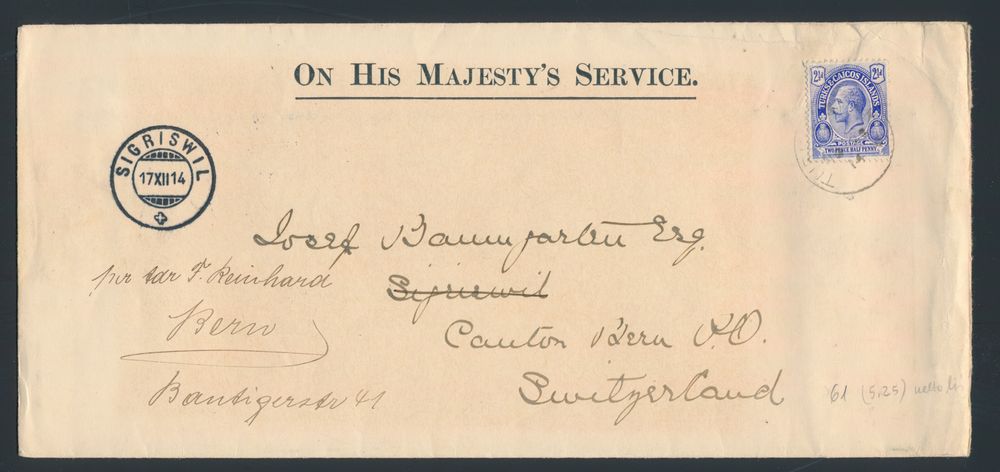 ON HIS MAJESTY'S SERVICE.
2½d 2½d
TURKS & CAICOS ISLANDS
POSTAGE
TWO PENCE HALF PENNY
SIGRISWIL
17XII14
Josef Baumgarten Esq.
per adr F. Reinhard
Sigriswil
Bern
Canton Bern P.O.
Bantigerstr 41
Switzerland
61 (5.25) netto